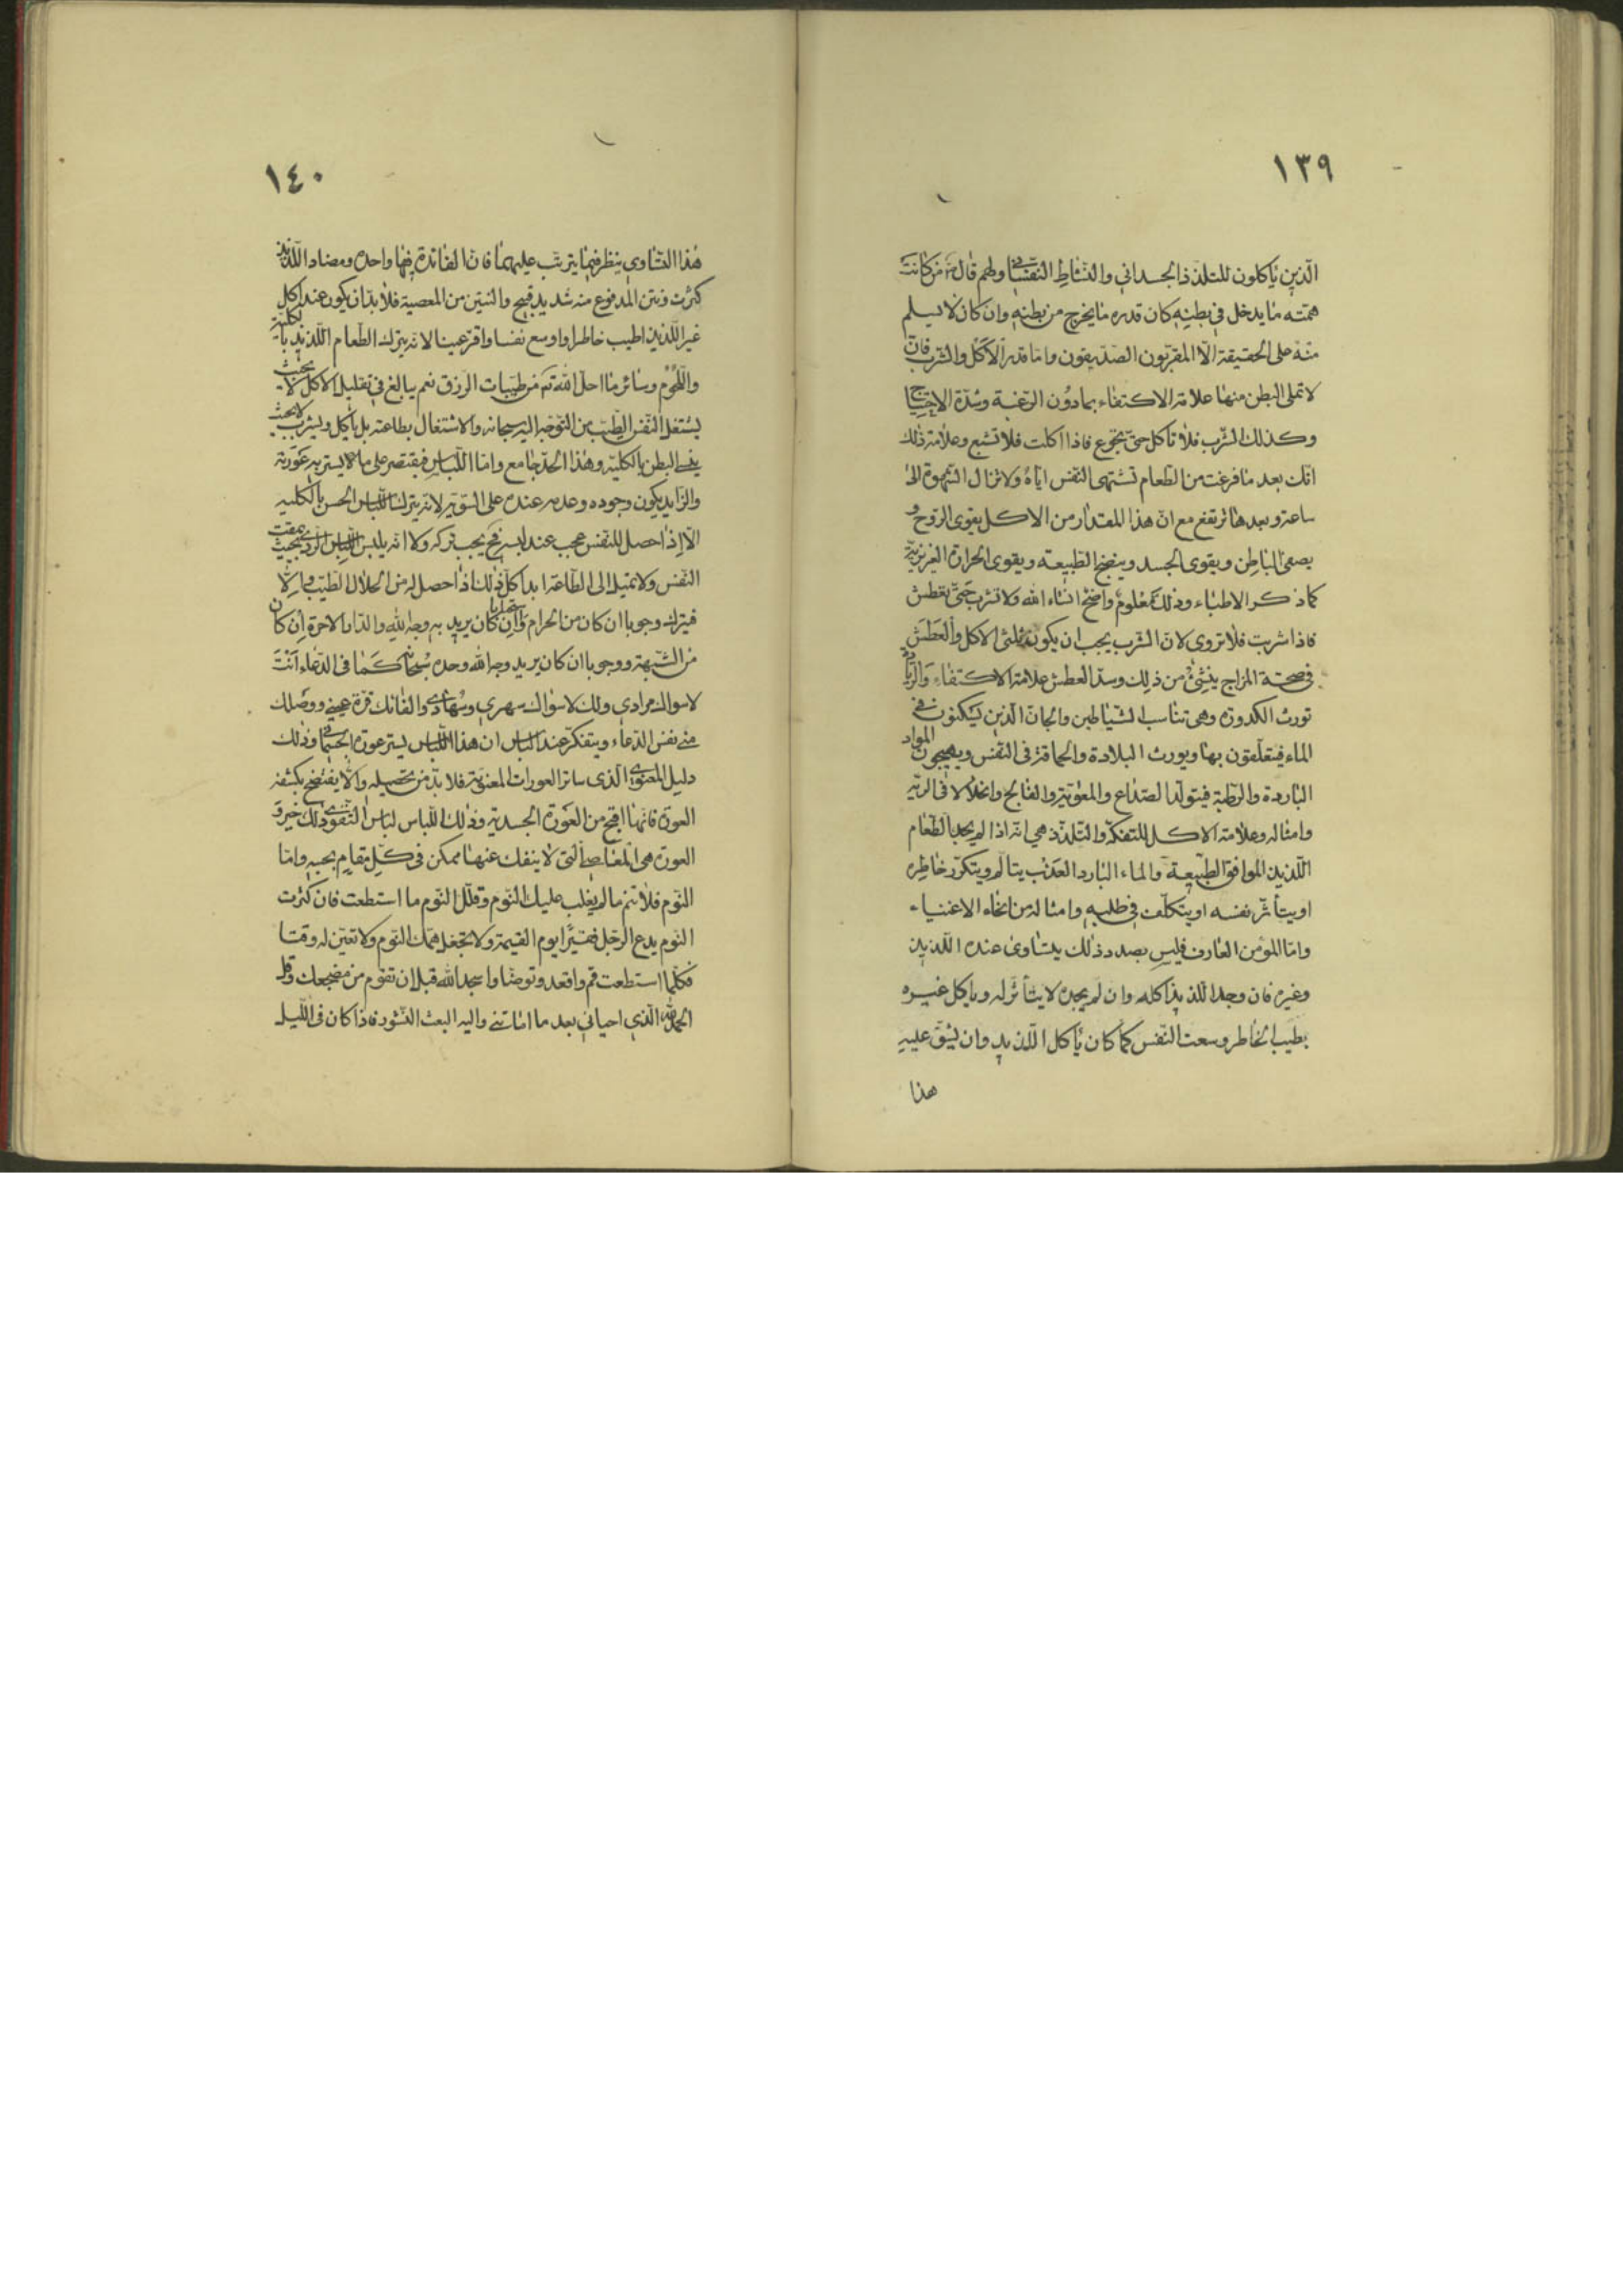 ١٣٩
الذين ياكلون للتلذذ الجسداني والنشاط النفساني ولهم قال من كانت
همته ما يدخل في بطنه كان قدره ما يخرج من بطنه وان كان لا يسلم
منه على الحقيقة الا المقربون الصديقون واما قدر الاكل والشرب فان
لا تملى البطن منها علامة الاكتفاء بمادون الرغبة وشدة الاحتياج
وكذلك الشرب فلا تاكل حتى تجوع فاذا اكلت فلا تشبع وعلامة ذلك
انك بعد ما فرغت من الطعام تشتهى النفس اياه ولا تزال الشهوة الى
ساعة وبعدها ترتفع مع ان هذا المقدار من الاكل يقوى الروح و
يصفى الباطن ويقوى الجسد وينضج الطبيعة ويقوى الحرارة الغريزية
كما ذكر الاطباء وذلك معلوم واضح انشاء الله ولا تشرب حتى تعطش
فاذا شربت فلا تروى لان الشرب يجب ان يكون ثلثى الاكل والعطش
في صحة المزاج ينشئ من ذلك وسد العطش علامة الاكتفاء والزيادة
تورث الكدورة وهى تناسب الشياطين والجان الذين يسكنون في
الماء فيتعلقون بها ويورث البلادة والحماقة فى النفس ويهيجون المواد
الباردة والرطبة فيتولد الصداع والفالج وانحلال فى الرية
وامثاله وعلامة الاكل للتفكه والتلذذ هي انه اذا لم يجد الطعام
اللذيذ الموافق الطبيعة والماء البارد العذب يتالم ويتكدر خاطره
او يتأثر نفسه او يتكلف في طلبه وامثاله من انحاء الاغنياء
واما المؤمن العارف فليس بصدد ذلك يتساوى عنده اللذيذ
وغيره فان وجد اللذيذ اكله وان لم يجده لا يتأثر له وياكل غيره
بطيب الخاطر وسعت النفس كما كان يأكل اللذيذ وان يشق عليه
هذا
١٤٠
هذا التساوي ينظر فيما يترتب عليهما فان الفائدة فيها واحدة ومضار اللذيذ
كثرت ونتن المدفوع منه شديد قبيح والنتين من المعصية فلا بد ان يكون عند اكل
غير اللذيذ اطيب خاطرا واوسع نفسا واقر عينا لا انه يترك الطعام اللذيذ بالكلية
واللحوم وسائر ما احل الله من طيبات الرزق نعم يبالغ في تقليل الاكل بحيث لا
يشتغل النفس الطيب من التوجه اليه سبحانه والاشتغال بطاعته بل ياكل ويشرب لا بحيث
البطن بالكلية وهذا الحد جامع واما اللباس فيقتصر على ما يستر به عورته
والزايد يكون وجوده وعدمه عنده على السوية لا انه يترك اللباس الحسن بالكلية
الا اذا حصل للنفس عجب عند لبسه فح يجب تركه ولا انه يلبس اللباس الردى بحيث يمقت
النفس ولا تميل الى الطاعة ابدا كل ذلك اذا حصل له من الحلال الطيب والا
فيترك وجوبا ان كان من الحرام وان كان يريد به وجه الله والدار الاخرة ان كان
من الشبهة ووجوبا ان كان يريد وجه الله وحده سبحانه كما فى الدعاء انت
لا سواك مرادي ولك لا سواك سهري وسهادى ولقائك قرة عيني ووصلك
منى نفس الدعاء ويتفكر عند لباس ان هذا اللباس يستر عورة الجسمانى وذلك
دليل المعنوى الذى ساتر العورات المعنوية فلا بد من تحصيله والا يفتضح بكشفه
العورة فانها اقبح من العورة الجسدية وذلك اللباس لباس التقوى ذلك خير و
العورة هى التى لا ينفك عنها ممكن فى كل مقام بحسبه واما
النوم فلا تنم ما لم يغلب عليك النوم وقلل النوم ما استطعت فان كثرت
النوم يدع الرجل فقيرا يوم القيمة ولا تجعل همك النوم ولا تعين له وقتا
فكلما استطعت قم واقعد وتوضا واسجد الله قبل ان تقوم من مضجعك وقل
الحمد لله الذي احياني بعد ما اماتني واليه البعث النشور فاذا كان فى الليل